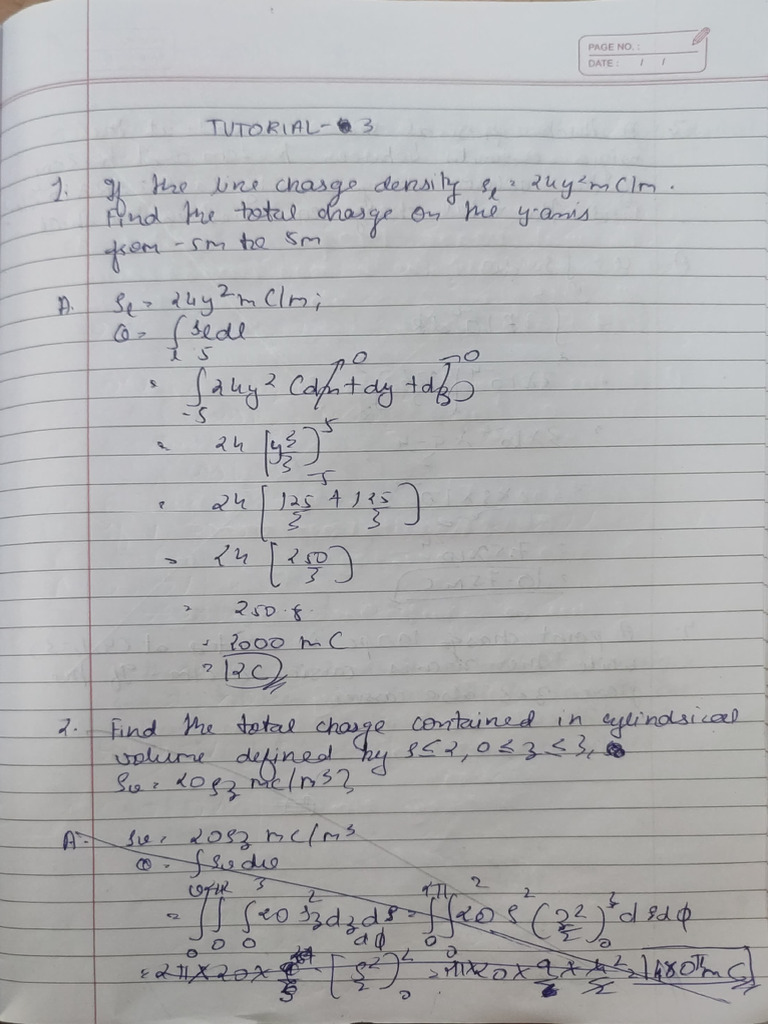 PAGE NO.:
DATE: / /
TUTORIAL- 3
1. If the line charge density ρl = 24y² mC/m.
Find the total charge on the y-axis
from -5m to 5m
A. ρl = 24y² mC/m;
Q = ∫l ρl dl
= ∫_-5^5 24y² (dx→0 + dy + dz→0)
= 24 [y³/3]_-5^5
= 24 [125/3 + 125/3]
= 24 [250/3]
= 250.8
= 2000 mC
= 2C
2. Find the total charge contained in cylindrical
volume defined by ρ≤2, 0≤z≤3,
ρv = 20ρz mC/m³
A. ρv = 20ρz mC/m³
Q = ∫ρv dv
= ∫∫∫ 20 ρ²z dz dρ dφ = ∫_0^2π ∫_0^2 20 ρ² (z²/2)_0^3 dρ dφ
= 2π × 20 × [ρ²/2]_0^2 = π × 20 × 9/2 × 4/2 = 180π mC